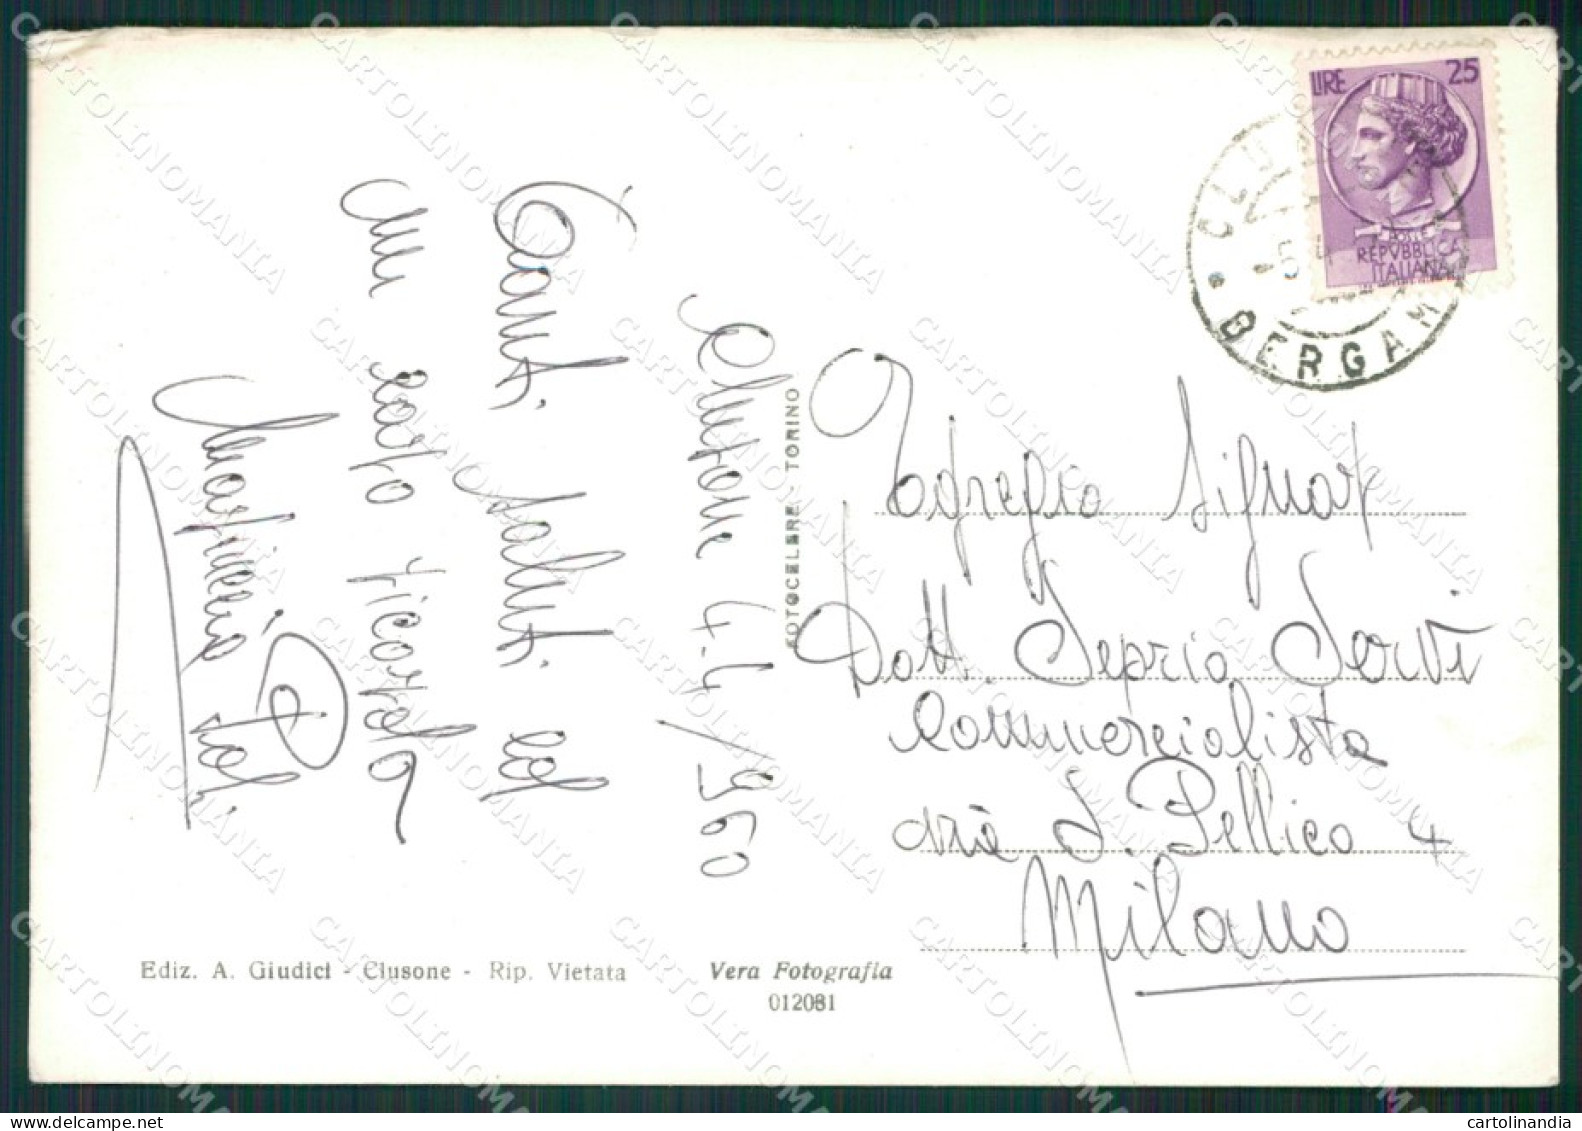 LIRE 25
POSTE
REPVBBLICA
ITALIANA
BERGAM
Clusone 4.4/960
Tanti saluti ed
un caro ricordo
FOTOCELERE - TORINO
Egregio Signor
Dott. Seprio Servi
Commercialista
via S. Pellico 4
Milano
Ediz. A. Giudici - Clusone - Rip. Vietata
Vera Fotografia
012081
CARTOLINOMANIA
cartolinandia